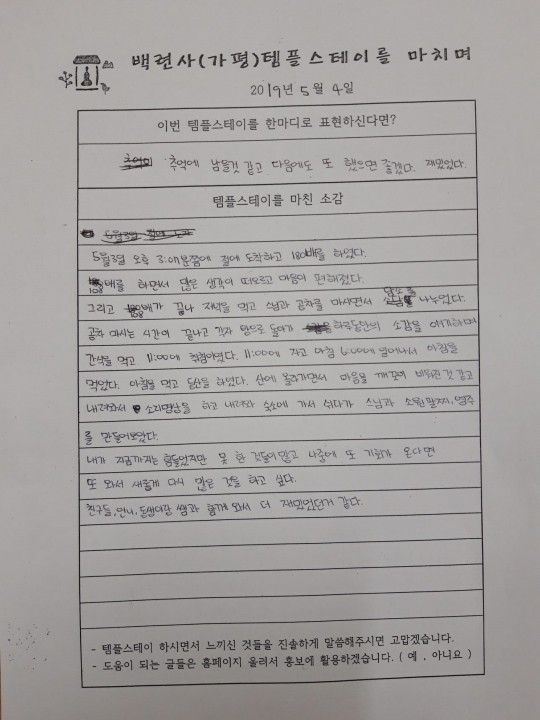 백련사(가평)템플스테이를 마치며
2019년 5월 4일
이번 템플스테이를 한마디로 표현하신다면?
추억에 남을것 같고 다음에도 또 했으면 좋겠다. 재밌었다.
템플스테이를 마친 소감
5월3일 오후 3:00분쯤에 절에 도착하고 108배를 하였다.
108배를 하면서 많은 생각이 떠오르고 마음이 편해졌다.
그리고 108배가 끝나 저녁을 먹고 스님과 공차를 마시면서 담소를 나누었다.
공차 마시는 시간이 끝나고 각자 방으로 돌아가 하루동안의 소감을 얘기하며
간식을 먹고 11:00에 취침하였다. 11:00에 자고 아침 6:00에 일어나서 아침을
먹었다. 아침을 먹고 등산을 하였다. 산에 올라가면서 마음을 깨끗이 비워진 것 같고
내려와서 소지명상을 하고 내려와 숙소에 가서 쉬다가 스님과 소원팔찌, 염주
를 만들어보았다.
내가 지금까지는 힘들었지만 못 한 것들이 많고 나중에 또 기회가 온다면
또 와서 새롭게 다시 많은 것들을 하고 싶다.
친구들, 언니, 동생이랑 쌤과 함께 와서 더 재밌었던거 같다.
- 템플스테이 하시면서 느끼신 것들을 진솔하게 말씀해주시면 고맙겠습니다.
- 도움이 되는 글들은 홈페이지 올려서 홍보에 활용하겠습니다. ( 예 . 아니요 )